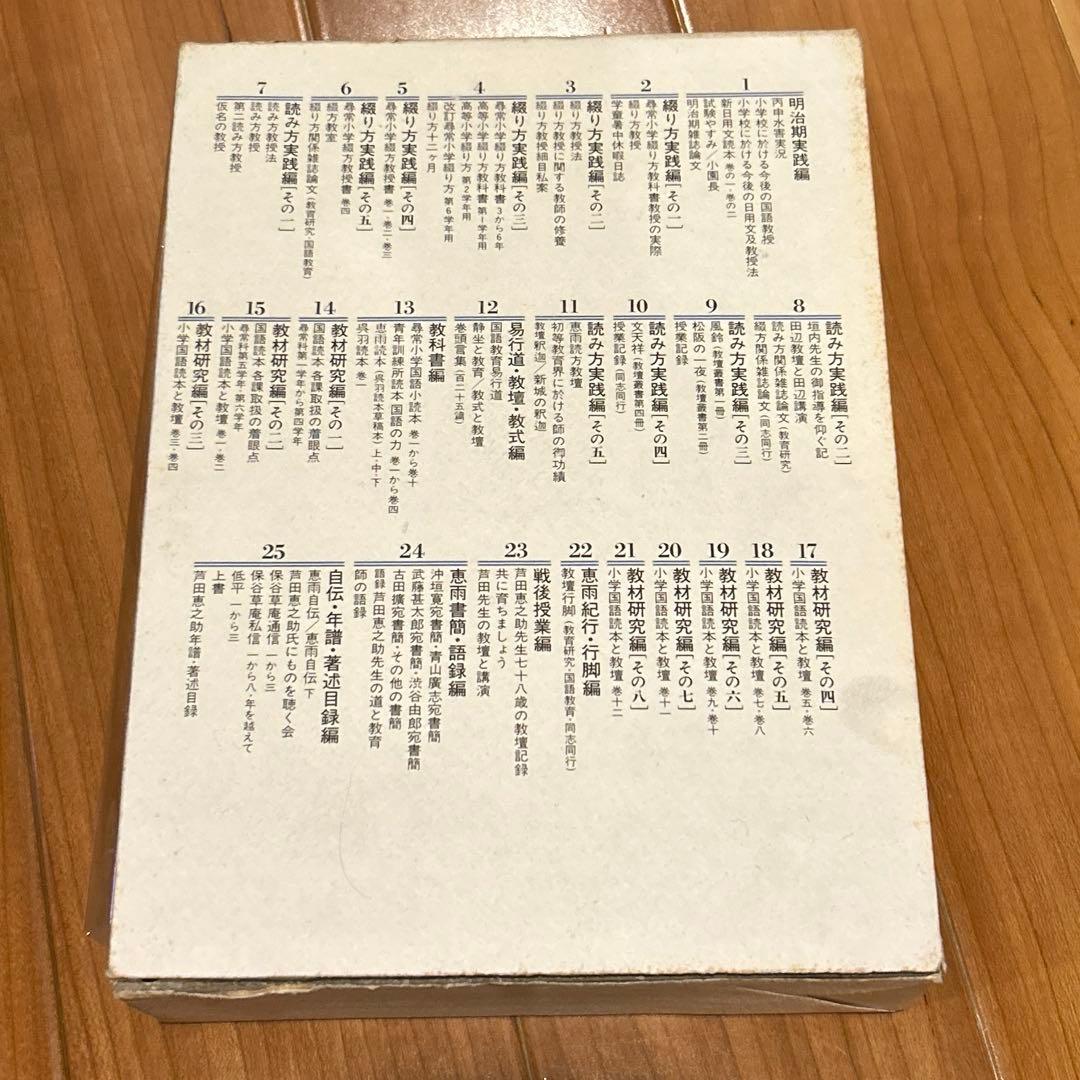 1
明治期実践編
丙申水害実況
小学校に於ける今後の国語教授
小学校に於ける今後の日用文及教授法
新日用文読本 巻の一・巻の二
試験やすみ／小園長
明治期雑誌論文
2
綴り方実践編[その一]
尋常小学綴り方教科書教授の実際
学童暑中休暇日誌
3
綴り方実践編[その二]
綴り方教授法
綴り方教授に関する教師の修養
綴り方教授細目私案
4
綴り方実践編[その三]
尋常小学綴り方教科書 3から6年
高等小学綴り方教科書 第1学年用
高等小学綴り方 第2学年用
改訂尋常小学綴り方 第6学年用
綴り方十二ヶ月
5
綴り方実践編[その四]
尋常小学綴方教授書 巻一・巻二・巻三
6
綴り方実践編[その五]
尋常小学綴方教授書 巻四
綴り方教室
綴り方関係雑誌論文（教育研究・国語教育）
7
読み方実践編[その一]
読み方教授法
読み方教授
第二読み方教授
仮名の教授
8
読み方実践編[その二]
垣内先生の御指導を仰ぐ記
田辺教壇と田辺講演
読み方関係雑誌論文（教育研究）
綴方関係雑誌論文（同志同行）
9
読み方実践編[その三]
風鈴（教壇叢書第一冊）
松阪の一夜（教壇叢書第二冊）
授業記録
10
読み方実践編[その四]
文天祥（教壇叢書第四冊）
授業記録（同志同行）
11
読み方実践編[その五]
恵雨読方教壇
初等教育界に於ける師の御功績
教壇釈迦／新城の釈迦
12
易行道・教壇・教式編
国語教育易行道
静坐と教育／教式と教壇
巻頭言集（百二十五篇）
13
教科書編
尋常小学国語小読本 巻一から巻十
青年訓練所読本 国語の力 巻一から巻四
恵雨読本（呉羽読本草稿本）上・中・下
呉羽読本 巻一
14
教材研究編[その一]
国語読本各課取扱の着眼点
尋常科第一学年から第四学年
15
教材研究編[その二]
国語読本各課取扱の着眼点
尋常科第五学年・第六学年
小学国語読本と教壇 巻一・巻二
16
教材研究編[その三]
小学国語読本と教壇 巻三・巻四
17
教材研究編[その四]
小学国語読本と教壇 巻五・巻六
18
教材研究編[その五]
小学国語読本と教壇 巻七・巻八
19
教材研究編[その六]
小学国語読本と教壇 巻九・巻十
20
教材研究編[その七]
小学国語読本と教壇 巻十一
21
教材研究編[その八]
小学国語読本と教壇 巻十二
22
恵雨紀行・行脚編
教壇行脚（教育研究・国語教育・同志同行）
23
戦後授業編
芦田恵之助先生七十八歳の教壇記録
共に育ちましょう
芦田先生の教壇と講演
24
恵雨書簡・語録編
沖垣寛宛書簡・青山廣志宛書簡
武藤甚太郎宛書簡・渋谷由郎宛書簡
古田擴宛書簡・その他の書簡
語録 芦田恵之助先生の道と教育
師の語録
25
自伝・年譜・著述目録編
恵雨自伝／恵雨自伝 下
芦田恵之助氏にものを聴く会
保谷草庵通信 一から三
保谷草庵私信 一から八・年を越えて
低平 一から三
上書
芦田恵之助年譜・著述目録